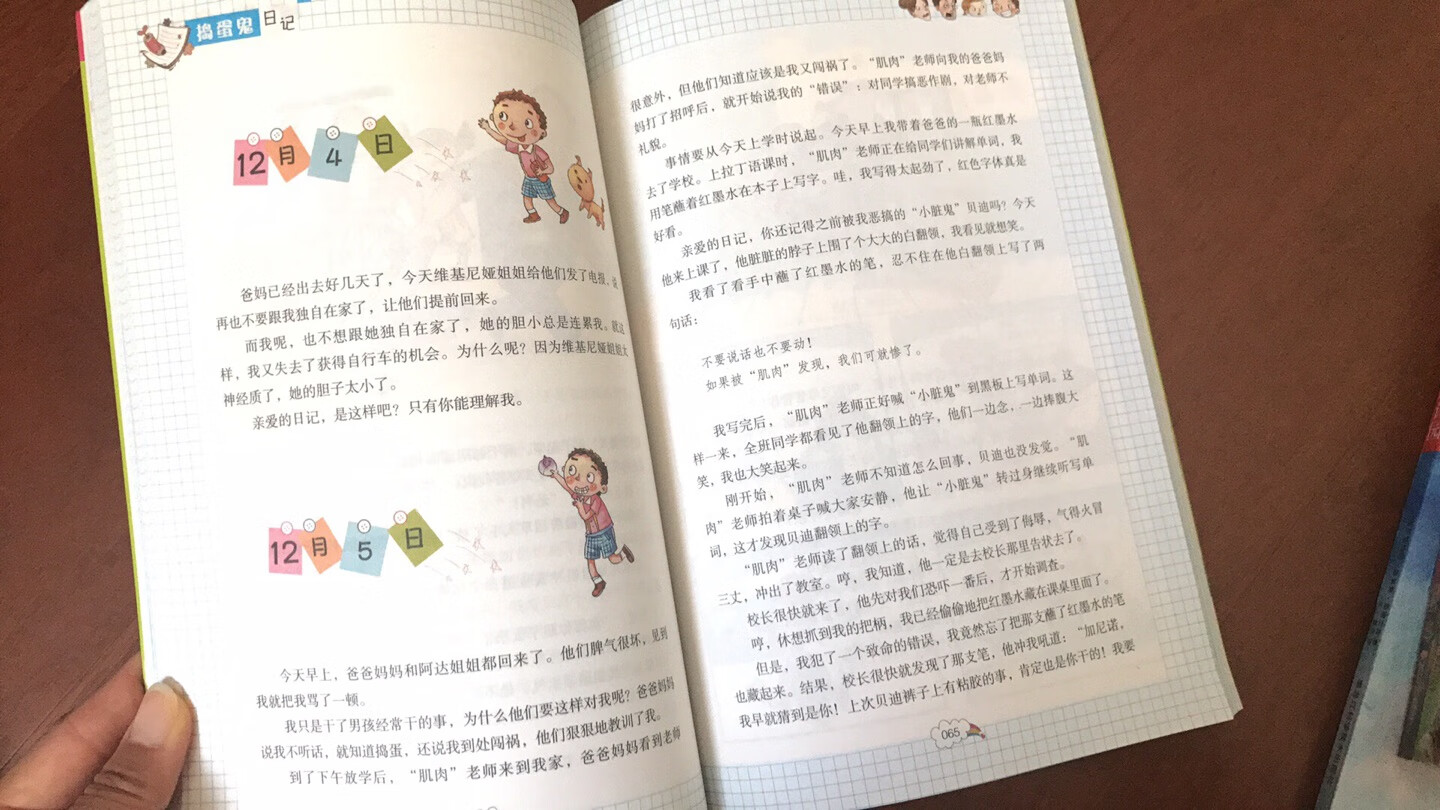 捣蛋鬼日记
12月4日
爸妈已经出去好几天了，今天维基尼娅姐姐给他们发了电报，说
再也不要跟我独自在家了，让他们提前回来。
而我呢，也不想跟她独自在家了，她的胆小总是连累我。就这
样，我又失去了获得自行车的机会。为什么呢？因为维基尼娅姐姐太
神经质了，她的胆子太小了。
亲爱的日记，是这样吧？只有你能理解我。
12月5日
今天早上，爸爸妈妈和阿达姐姐都回来了。他们脾气很坏，见到
我就把我骂了一顿。
我只是干了男孩经常干的事，为什么他们要这样对我呢？爸爸妈妈
说我不听话，就知道捣蛋，还说我到处闯祸，他们狠狠地教训了我。
到了下午放学后，“肌肉”老师来到我家，爸爸妈妈看到老师
很意外，但他们知道应该是我又闯祸了。“肌肉”老师向我的爸爸妈
妈打了招呼后，就开始说我的“错误”：对同学搞恶作剧，对老师不
礼貌。
事情要从今天上学时说起。今天早上我带着爸爸的一瓶红墨水
去了学校。上拉丁语课时，“肌肉”老师正在给同学们讲解单词，我
用笔蘸着红墨水在本子上写字。哇，我写得太起劲了，红色字体真是
好看。
亲爱的日记，你还记得之前被我恶搞的“小脏鬼”贝迪吗？今天
他来上课了，他脏脏的脖子上围了个大大的白翻领，我看见就想笑。
我看了看手中蘸了红墨水的笔，忍不住在他白翻领上写了两
句话：
不要说话也不要动！
如果被“肌肉”发现，我们可就惨了。
我写完后，“肌肉”老师正好喊“小脏鬼”到黑板上写单词。这
样一来，全班同学都看见了他翻领上的字，他们一边念，一边捧腹大
笑，我也大笑起来。
刚开始，“肌肉”老师不知道怎么回事，贝迪也没发觉。“肌
肉”老师拍着桌子喊大家安静，他让“小脏鬼”转过身继续听写单
词，这才发现贝迪翻领上的字。
“肌肉”老师读了翻领上的话，觉得自己受到了侮辱，气得火冒
三丈，冲出了教室。哼，我知道，他一定是去校长那里告状去了。
校长很快就来了，他先对我们恐吓一番后，才开始调查。
哼，休想抓到我的把柄，我已经偷偷地把红墨水藏在课桌里面了。
但是，我犯了一个致命的错误，我竟然忘了把那支蘸了红墨水的笔
也藏起来。结果，校长很快就发现了那支笔，他冲我吼道：“加尼诺，
我早就猜到是你！上次贝迪裤子上有粘胶的事，肯定也是你干的！我要
065